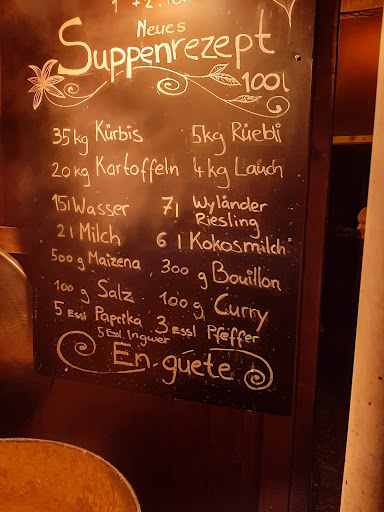 Neues
Suppenrezept
100l
35kg Kürbis 5kg Rüebli
20kg Kartoffeln 4kg Lauch
15l Wasser 7l Wyländer Riesling
2l Milch 6l Kokosmilch
500g Maizena 300g Bouillon
100g Salz 100g Curry
5 Essl Paprika 3 Essl Pfeffer
5 Essl. Ingwer
En guete